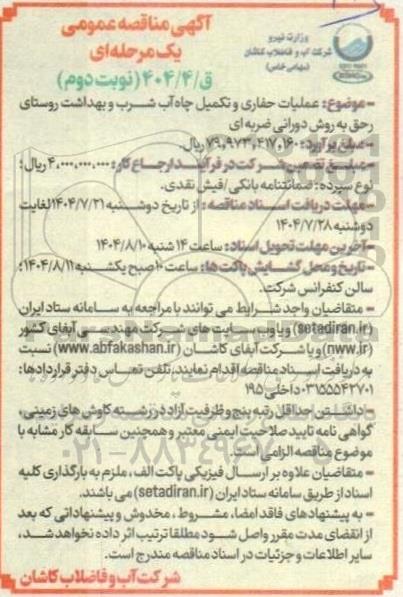 آگهی مناقصه عمومی
یک مرحله‌ای
ق/۴۰۴/۴ (نوبت دوم)
وزارت نیرو
شرکت آب و فاضلاب کاشان
(سهامی خاص)
- موضوع: عملیات حفاری و تکمیل چاه آب شرب و بهداشت روستای
رحق به روش دورانی ضربه ای
- مبلغ برآورد: ۷۹,۹۷۳,۴۱۷,۱۶۰ ریال.
- مبلغ تضمین شرکت در فرآیند ارجاع کار: ۴,۰۰۰,۰۰۰,۰۰۰ ریال؛
نوع سپرده: ضمانتنامه بانکی/فیش نقدی.
- مهلت دریافت اسناد مناقصه: از تاریخ دوشنبه ۱۴۰۴/۷/۲۱ لغایت
دوشنبه ۱۴۰۴/۷/۲۸
- آخرین مهلت تحویل اسناد: ساعت ۱۴ شنبه ۱۴۰۴/۸/۱۰
- تاریخ و محل گشایش پاکت ها: ساعت ۱۰ صبح یکشنبه ۱۴۰۴/۸/۱۱؛
سالن کنفرانس شرکت.
- متقاضیان واجد شرایط می توانند با مراجعه به سامانه ستاد ایران
(setadiran.ir) و یا وب سایت های شرکت مهندسی آبفای کشور
(nww.ir) و یا شرکت آبفای کاشان (www.abfakashan.ir) نسبت
به دریافت اسناد مناقصه اقدام نمایند، تلفن تماس دفتر قراردادها:
۰۳۱۵۵۵۴۲۷۰۱ داخلی ۱۹۵
- داشتن حداقل رتبه پنج و ظرفیت آزاد در رشته کاوش های زمینی،
گواهی نامه تایید صلاحیت ایمنی معتبر و همچنین سابقه کار مشابه با
موضوع مناقصه الزامی است.
- متقاضیان علاوه بر ارسال فیزیکی پاکت الف، ملزم به بارگذاری کلیه
اسناد از طریق سامانه ستاد ایران (setadiran.ir) می باشند.
- به پیشنهادهای فاقد امضا، مشروط، مخدوش و پیشنهاداتی که بعد
از انقضای مدت مقرر واصل شود مطلقا ترتیب اثر داده نخواهد شد،
سایر اطلاعات و جزئیات در اسناد مناقصه مندرج است.
شرکت آب و فاضلاب کاشان
۰۲۱-۸۸۳۴۹۶۷۰